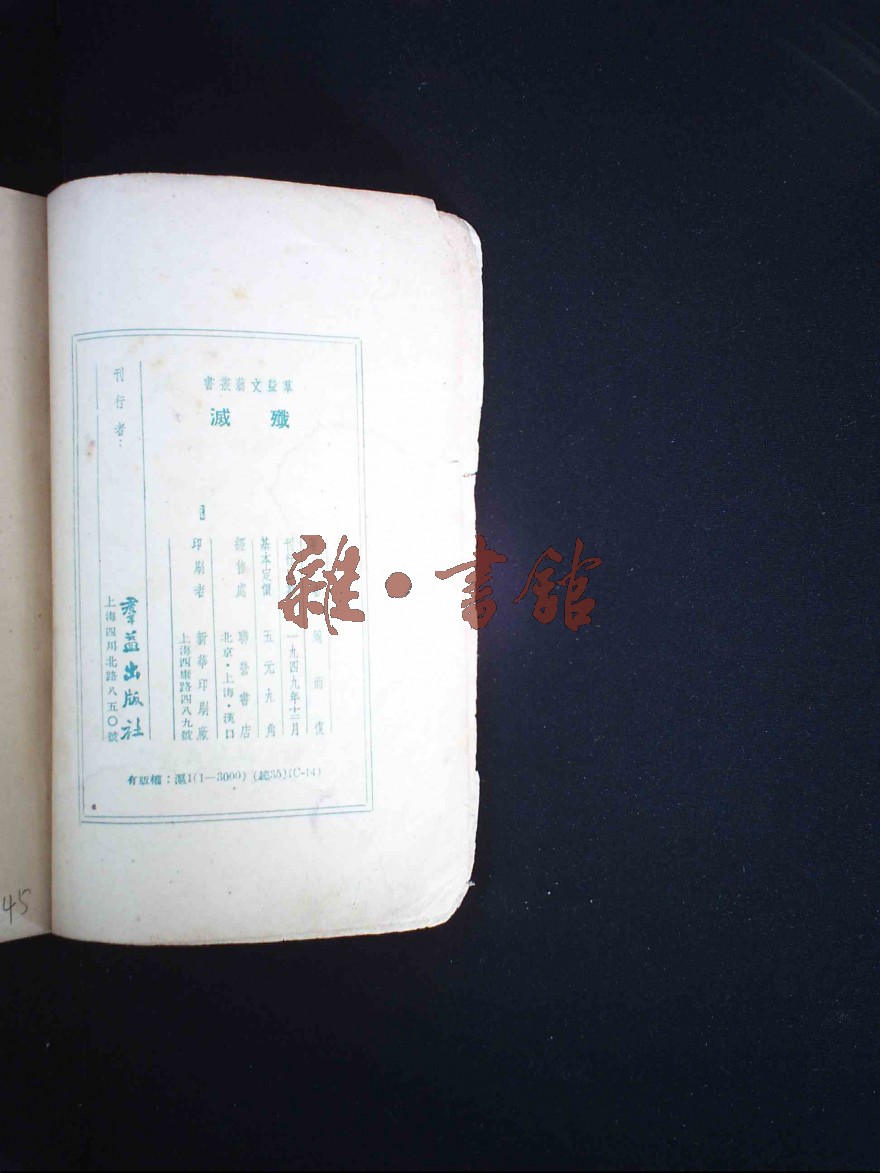 羣益文藝叢書
殲滅
周而復
一九四九年十二月
基本定價 五元九角
經售處 聯營書店
北京・上海・漢口
印刷者 新華印刷廠
上海西康路四八九號
刊行者：
羣益出版社
上海四川北路八五〇號
有版權：滬1(1—3000) (總35)(C-14)
45
雜・書館